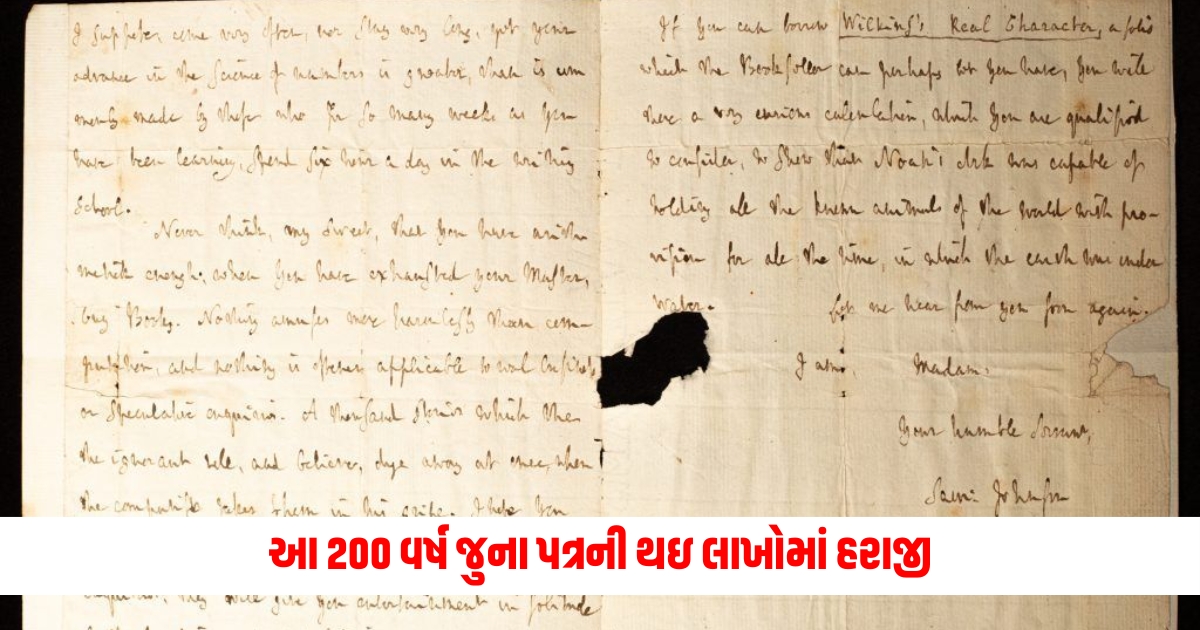 I suppose, come very often, nor stay very long, yet your
advance in the science of numbers is greater, than is com
monly made by those who for so many weeks as you
have been learning, spend six hours a day in the writing
school.
Never think, my Sweet, that you have arith-
metick enough; when you have exhausted your Master,
buy Books. Nothing amuses more harmlessly than com-
putation, and nothing is oftener applicable to real business
or speculative enquiries. A thousand stories which the
the ignorant tell, and believe, dye away at once, when
the computist takes them in his gripe. I hope you
enquiries, they will give you entertainment in solitude
If you can borrow Wilkins's Real Character, a folio
which the Bookseller can perhaps let you have, you will
have a very curious calculation, which you are qualified
to consider, to show that Noah's Ark was capable of
holding all the known animals of the world with pro-
vision for all the time, in which the earth was under
water. Let me hear from you soon again.
I am, Madam,
Your humble Servant,
Sam: Johnson
આ 200 વર્ષ જુના પત્રની થઇ લાખોમાં હરાજી